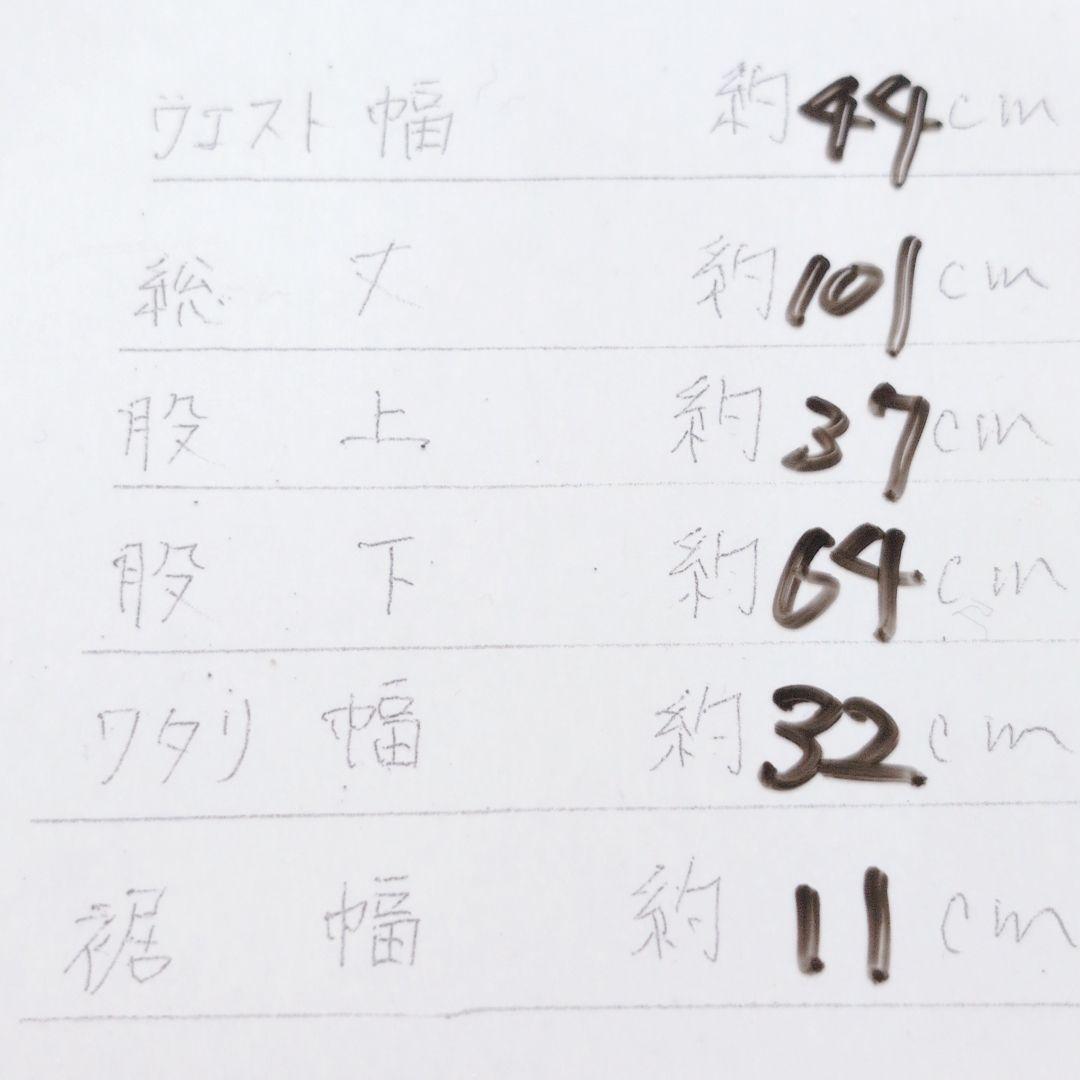 ウエスト幅 約44cm
総丈 約101cm
股上 約37cm
股下 約64cm
ワタリ幅 約32cm
裾幅 約11cm